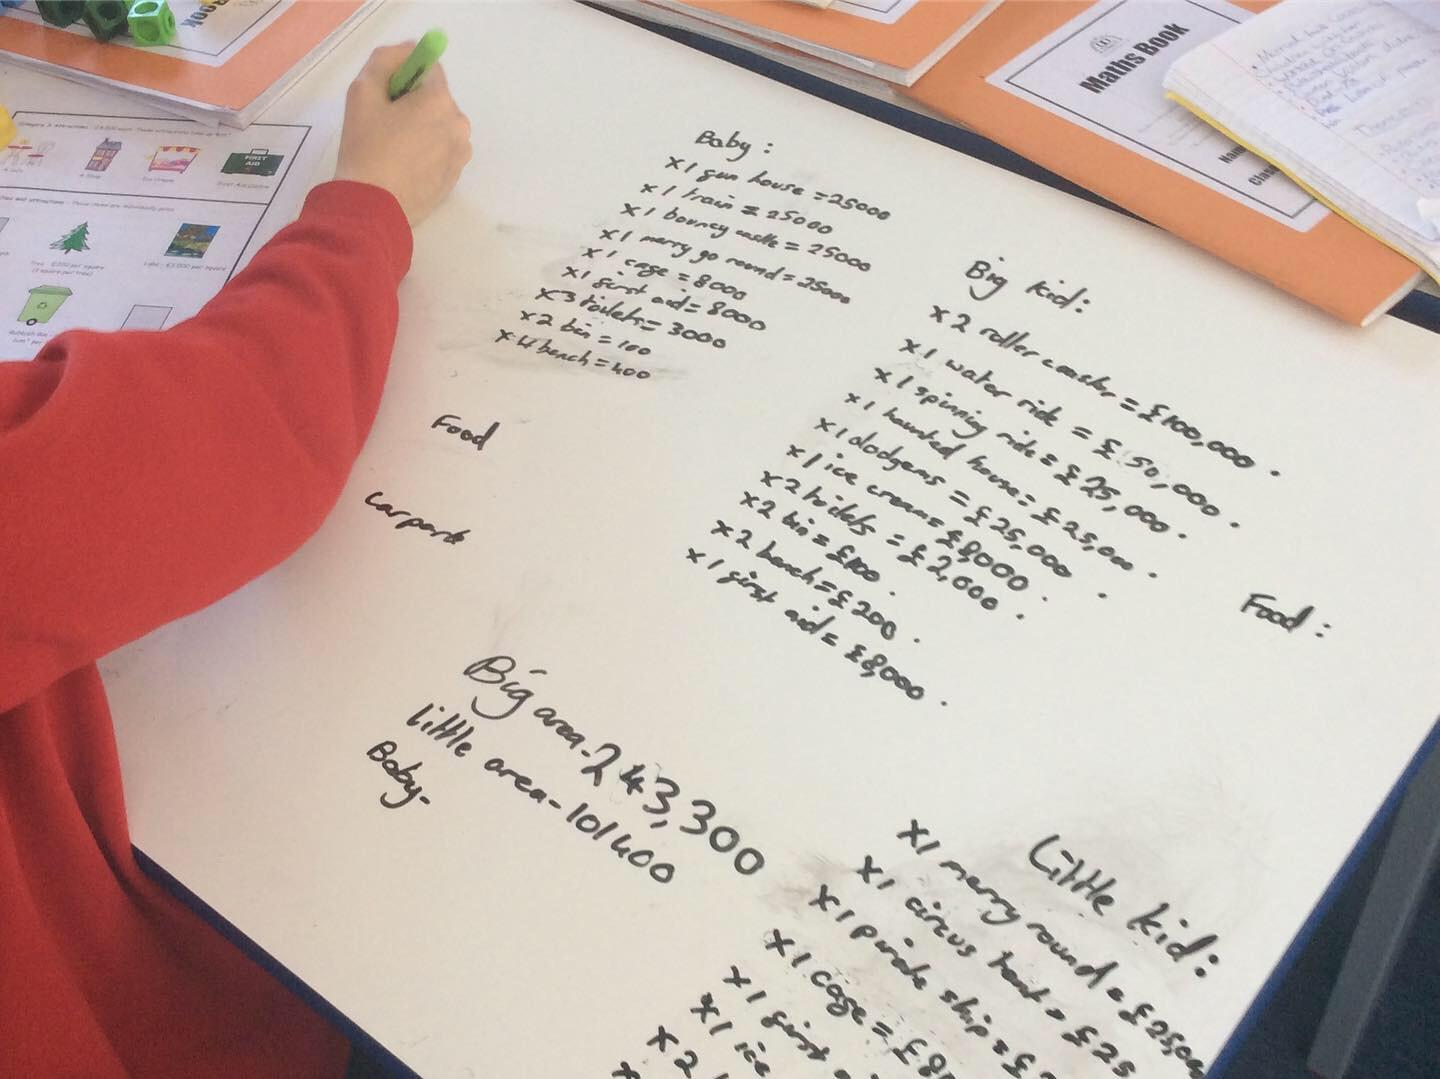 Maths Book
FIRST
AID
Baby:
x1 fun house = 25000
x1 train = 25000
x1 bouncy castle = 25000
x1 merry go round = 25000
x1 cage = 8000
x1 first aid = 8000
x3 toilets = 3000
x2 bin = 100
x4 bench = 400
Food
Carpark
Big kid:
x2 roller coaster = £100,000.
x1 water ride = £50,000.
x1 spinning ride = £25,000.
x1 haunted house = £25,000.
x1 dodgems = £25,000
x1 ice cream = £8000.
x2 toilets = £2,000.
x2 bin = £100.
x2 bench = £200.
x1 first aid = £8,000.
Food:
Big area - 243,300
little area - 101400
Baby -
Little kid:
x1 merry round = £25,000
x1 circus = £25
x1 pirate ship = £2
x1 cage = £8
x1 first
x1 ice
x2